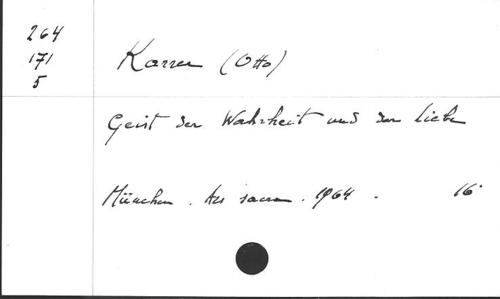 264
171
5
Karrer (Otto)
Geist der Wahrheit und der Liebe
München . Ars sacra . 1964 . 16°